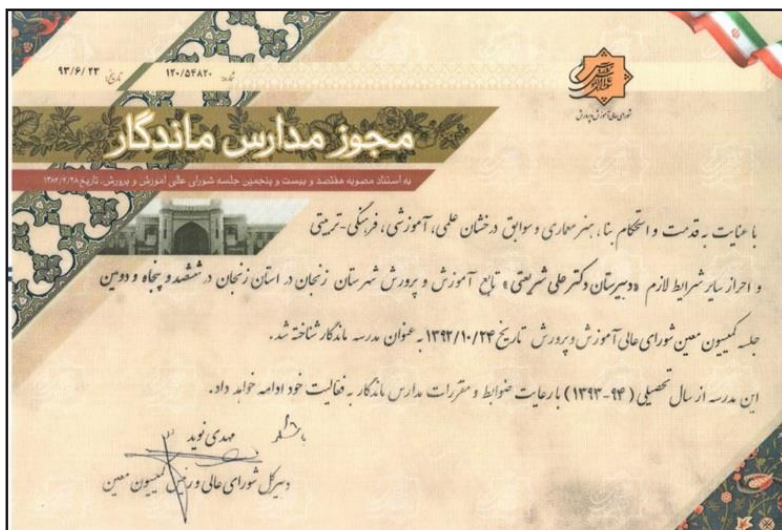 شماره: ۱۲۰/۵۴۸۲۰
تاریخ: ۹۳/۶/۲۳
شورای عالی آموزش و پرورش
مجوز مدارس ماندگار
به استناد مصوبه هفتصد و بیست و پنجمین جلسه شورای عالی آموزش و پرورش، تاریخ ۱۳۸۳/۲/۲۸
با عنایت به قدمت و استحکام بنا، هنر معماری و سوابق درخشان علمی، آموزشی، فرهنگی-تربیتی
و احراز سایر شرایط لازم «دبیرستان دکتر علی شریعتی» تابع آموزش و پرورش شهرستان زنجان در استان زنجان در ششصد و پنجاه و دومین
جلسه کمیسیون معین شورای عالی آموزش و پرورش تاریخ ۱۳۹۲/۱۰/۲۴ به عنوان مدرسه ماندگار شناخته شد.
این مدرسه از سال تحصیلی (۹۴-۱۳۹۳) با رعایت ضوابط و مقررات مدارس ماندگار به فعالیت خود ادامه خواهد داد.
مهدی نوید
دبیرکل شورای عالی و رئیس کمیسیون معین